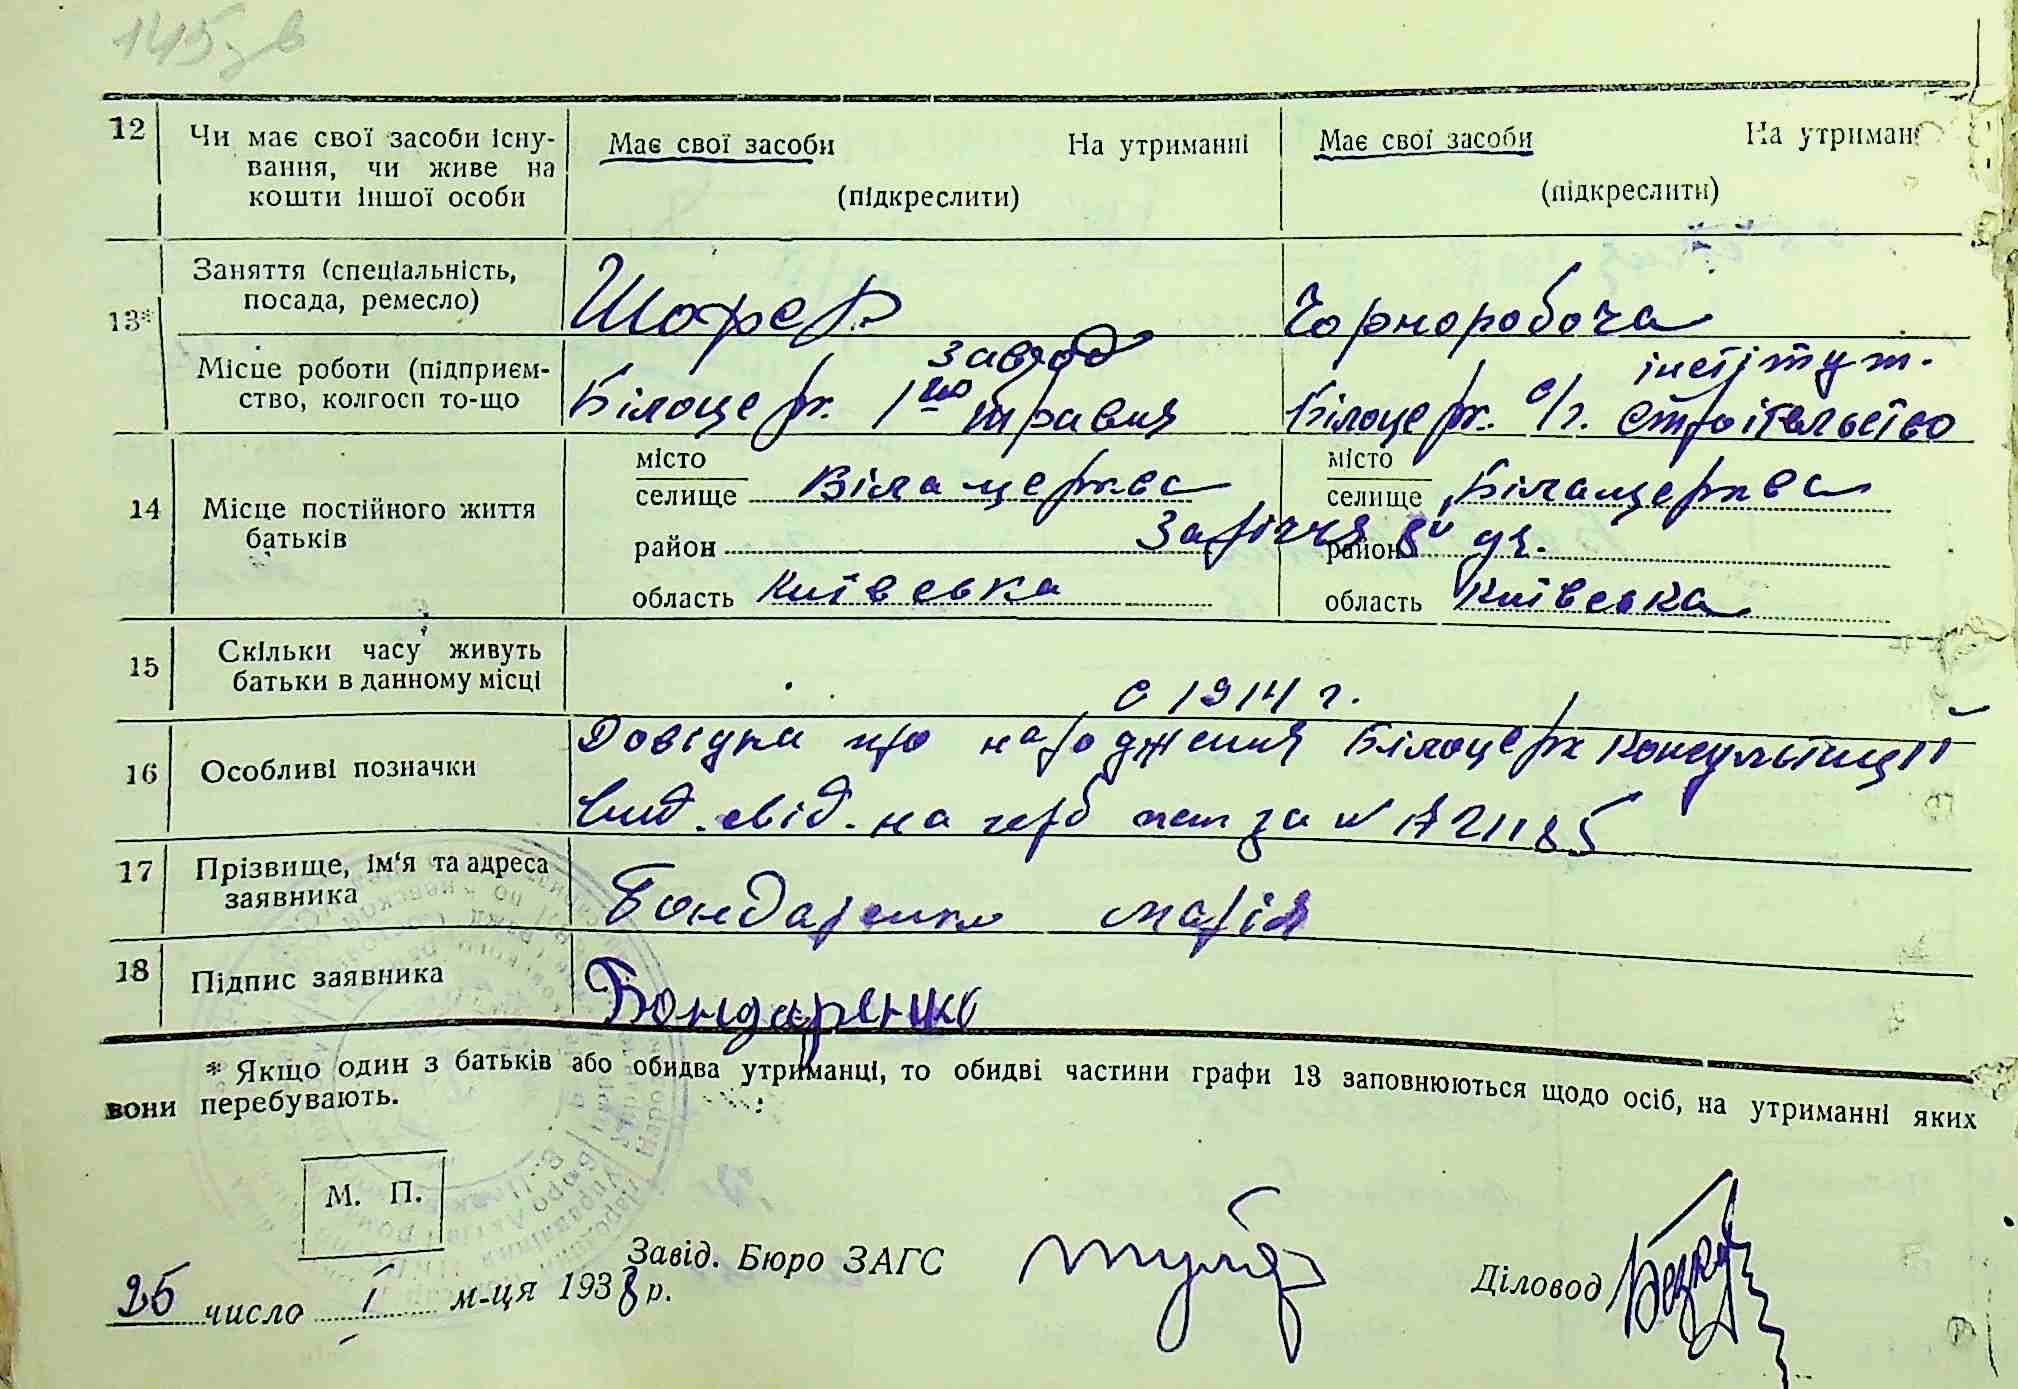 145 зв
12 Чи має свої засоби існу- Має свої засоби На утриманні Має свої засоби На утриман
вання, чи живе на
кошти іншої особи (підкреслити) (підкреслити)
13* Заняття (спеціальність,
посада, ремесло) Шофер Чорноробоча
Місце роботи (підприєм- завод інстітут.
ство, колгосп то-що Білоцерк. 1го травня Білоцерк. с/г. строітельство
14 Місце постійного життя
батьків
місто
селище Біла церква
місто
селище Біла церква
район Заріччя район 8й
область Київська область Київська
15 Скільки часу живуть
батьки в данному місці с 1914 г.
16 Особливі позначки Довідка про народження Білоцерк Консультації
вид. свід. на герб за № 21185
17 Прізвище, ім'я та адреса
заявника Бондаренко Марія
18 Підпис заявника Бондаренко
* Якщо один з батьків або обидва утриманці, то обидві частини графи 13 заповнюються щодо осіб, на утриманні яких
вони перебувають.
М. П.
Завід. Бюро ЗАГС
Діловод
25 число І м-ця 1938 р.